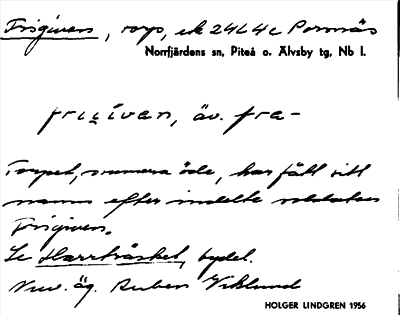 Frigiven, torp, ek 24L4c Porsnäs
Norrfjärdens sn, Piteå o. Älvsby tg, Nb l.
frigívan, äv. fra-
Torpet, numera öde, har fått sitt
namn efter indelte soldaten
Frigiven.
Se Harrträsket, bydel.
Nuv. äg. Ruben Viklund
HOLGER LINDGREN 1956